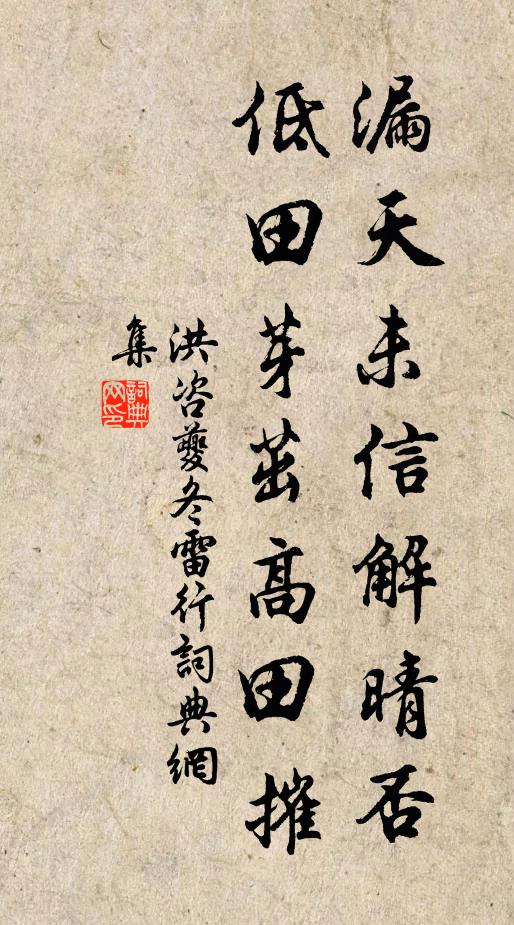 漏天未信解晴否
低田芽茁高田摧
洪咨夔冬雷行詞典網
集
詞典
网印